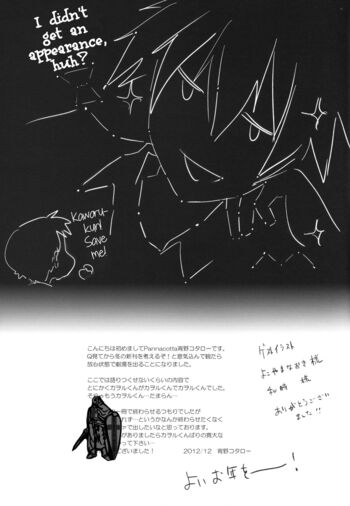 I didn't
get an
appearance,
huh?
Kaworu-
kun!
Save
me!
こんにちは初めましてPannacotta宵野コタローです。
Q見てから冬の新刊を考えるぞ！と意気込んで観たら
放心状態で観賞を出ることになりました。
ここでは語りつくせないくらいの内容で
とにかくカヲルくんがカヲルくんでカヲルくんでした。
カヲルくん…たまらん…
一冊で終わらせるつもりでしたが
というかなんか終わらせたくなく
で出したいなと思っております。
がありましたらカヲルしんばりの寛大な
って下さい…
ございました！ 2012/12 宵野コタロー
ゲストイラスト
よこやまなおき 様
様
ありがとうござい
ました!!
よいお年を〜!